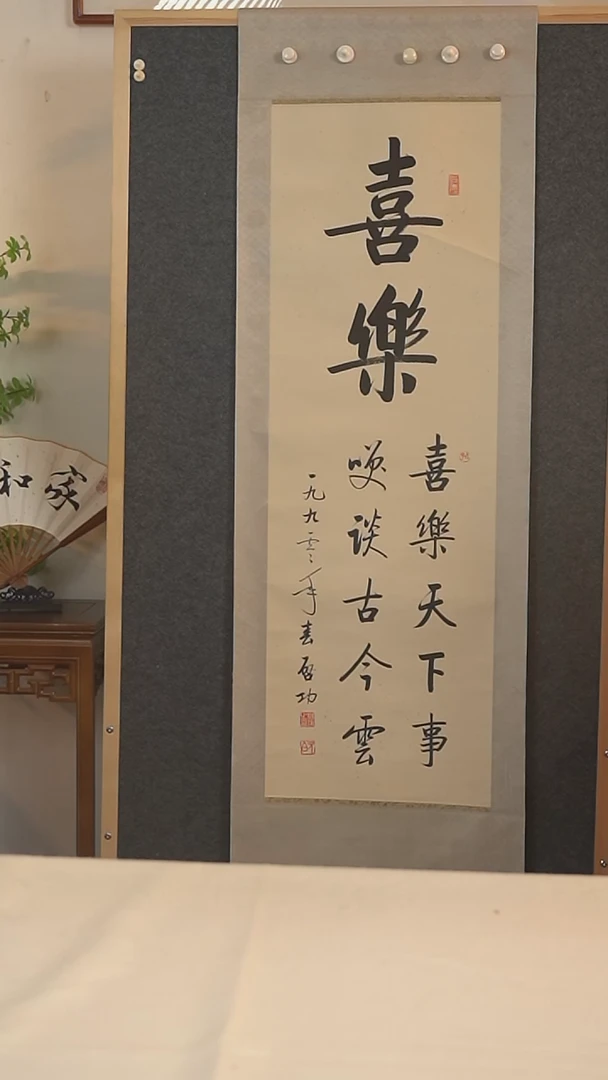 喜樂
喜樂天下事
咲谈古今雲
一九九零年春啓功
家和